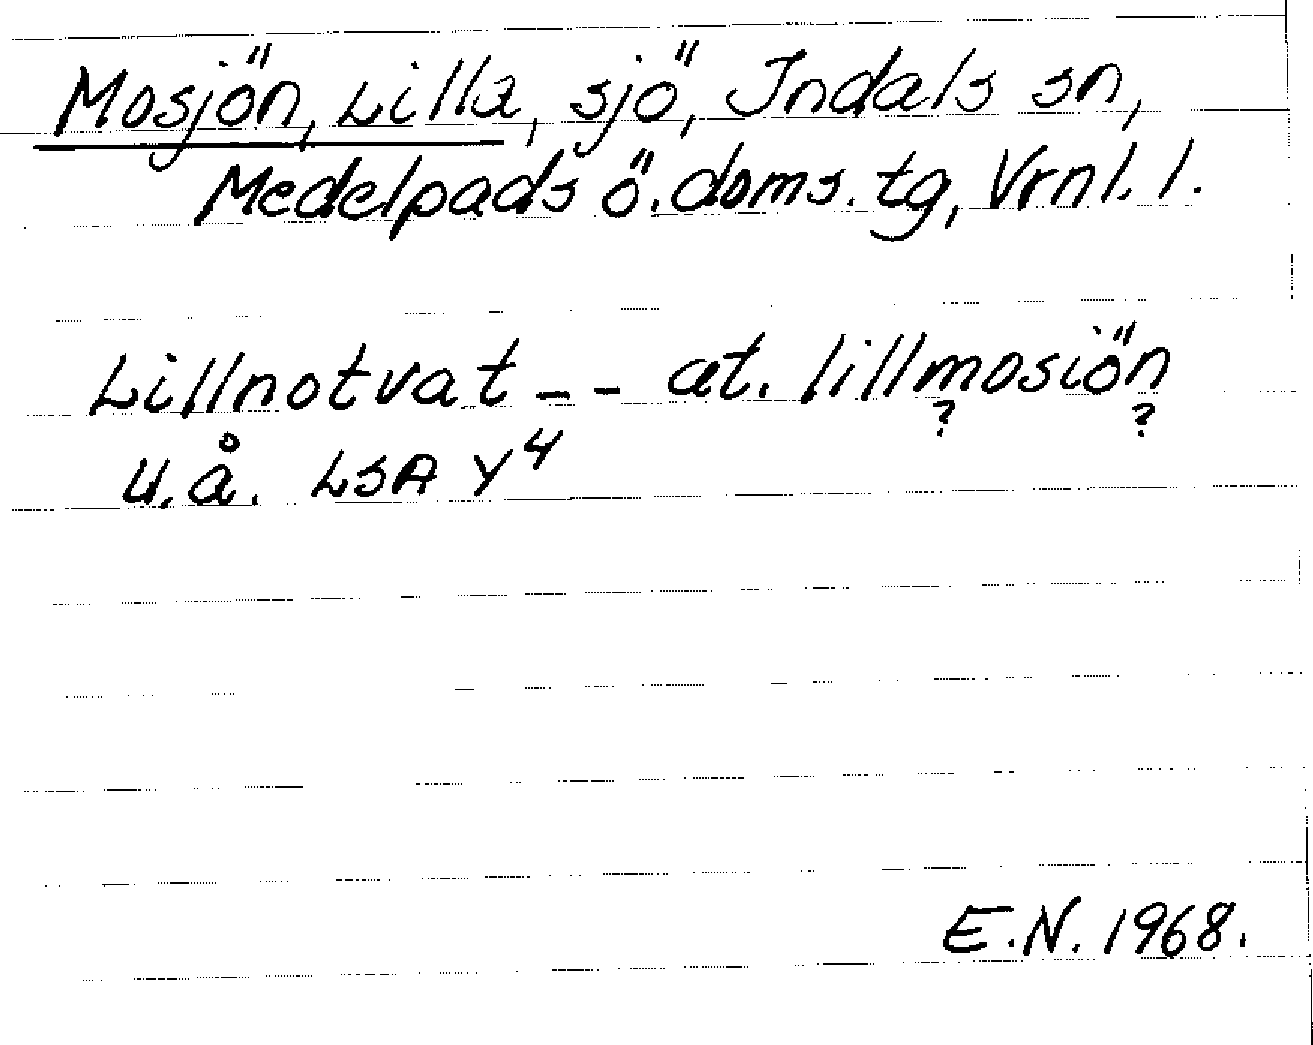 Mosjön, Lilla, sjö, Indals sn,
Medelpads ö. doms. tg, Vrnl. l.
Lillnotvat -- at. lillmosiön
? ?
u.å. LSA Y4
E.N. 1968.